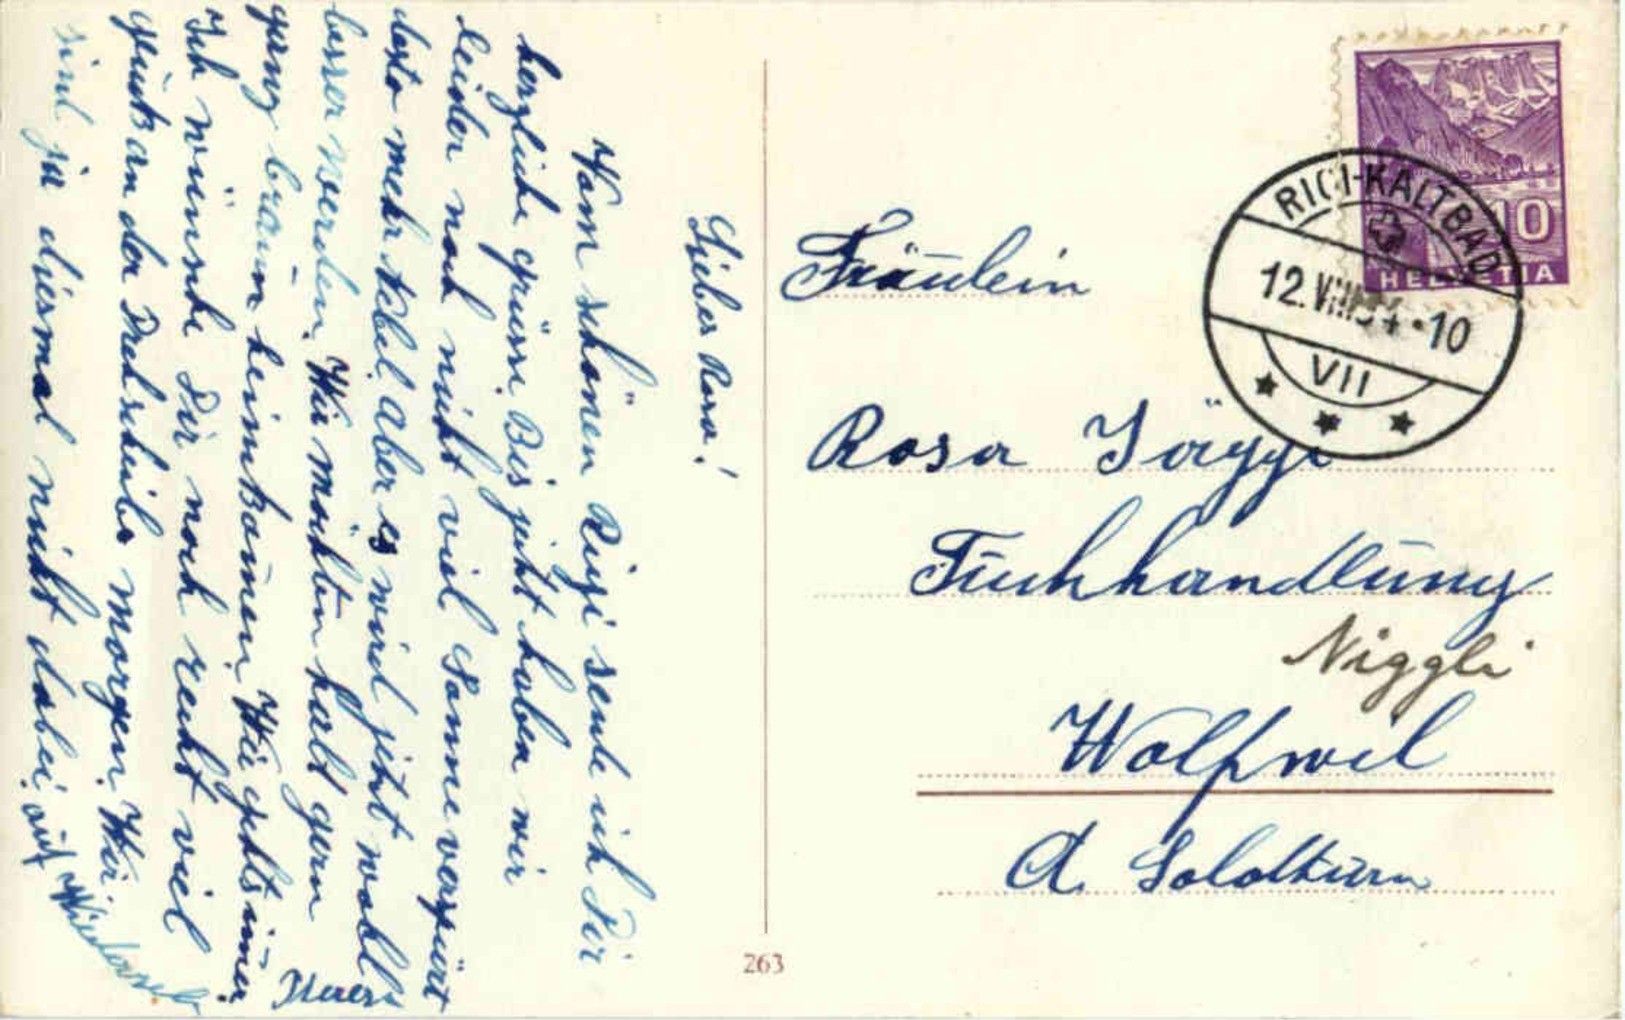 Liebes Rosa!
Vom schönen Rigi sende ich Dir
herzliche grüsse. Bis jetzt haben wir
leider noch nicht viel Sonne verspürt
desto mehr Nebel. Aber es wird jetzt wohl
besser werden. Wir möchten halt gern
ganz braun heimkommen. Wie gehts immer
Ich wünsche Dir noch recht viel
glück an der Drehscheibe morgen. Wir
sind ja diesmal nicht dabei. auf Wiederseh
Fräulein
Rosa Jäggi
Tuchhandlung
Niggli
Wolfwil
Ct. Solothurn
263
RIGI-KALTBAD
12.VIII34.-10
VII
10
HELVETIA